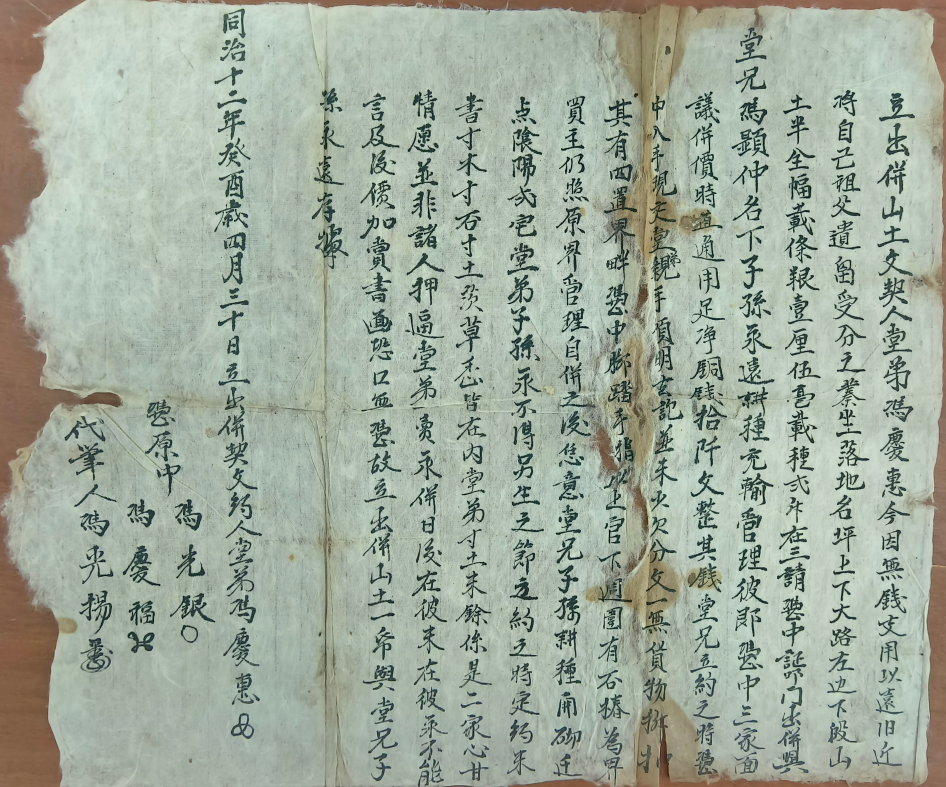 立出併山土文契人堂弟馮慶惠今因無錢支用以遠旧近
將自己祖父遺畄受分之業坐落地名坪上下大路左边下段山
土半全幅載條粮壹厘伍毫載種弍斗在三請憑中証門出併與
堂兄馮顯仲名下子孫永遠耕種充輸管理彼即憑中三家面
議併價時值通用足净銅錢拾阡文整其錢堂兄立約之時憑
中入手現交堂親手領明玄記並未少欠分文一無貨物挪扣
其有四置界畔憑中腳踏手指以上官下週圍有石樁為界
買主仍照原界管理自併之後恁意堂兄子孫耕種開砌迁
点陰陽弍宅堂弟子孫永不得另生之節立約之時定約未
書寸木寸石寸土茨草悉皆在内堂弟寸土未餘係是二家心甘
情愿並非諸人押逼堂弟一賣永併日後在彼未在彼永不能
言及後價加賣書画恐口無憑故立出併山土一帋與堂兄子
孫永遠存據
同治十二年癸酉歲四月三十日立出併契文約人堂弟馮慶惠
憑原中
馮光銀
馮慶福
代筆人馮光揚